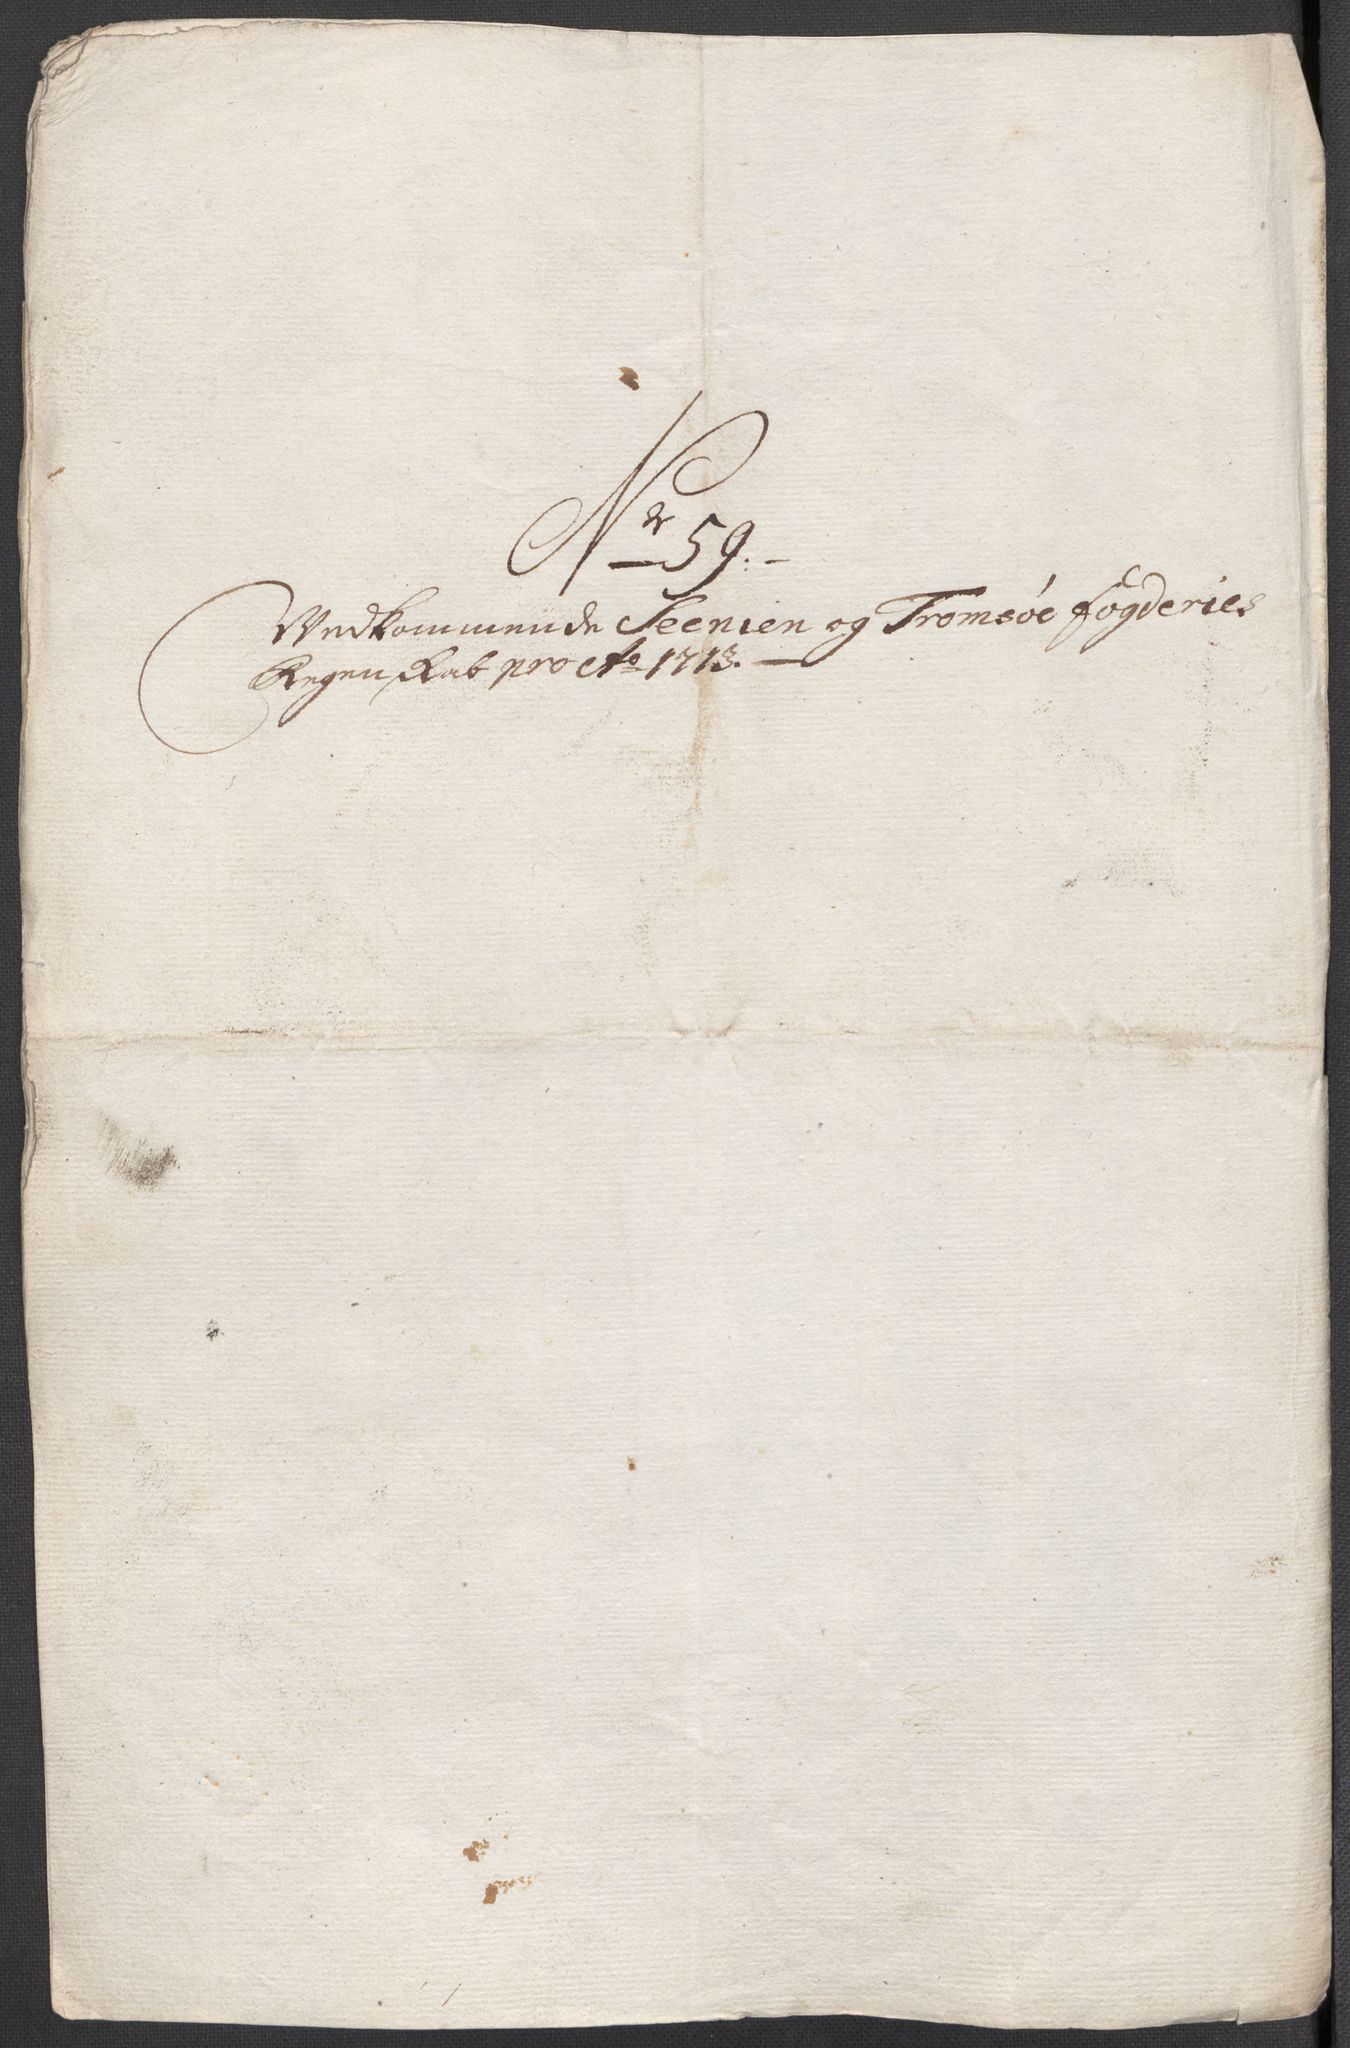 Nr 59.
Vedkommende Seenien og Tromsøe fogderies
Regenskab pro Ao 1713.